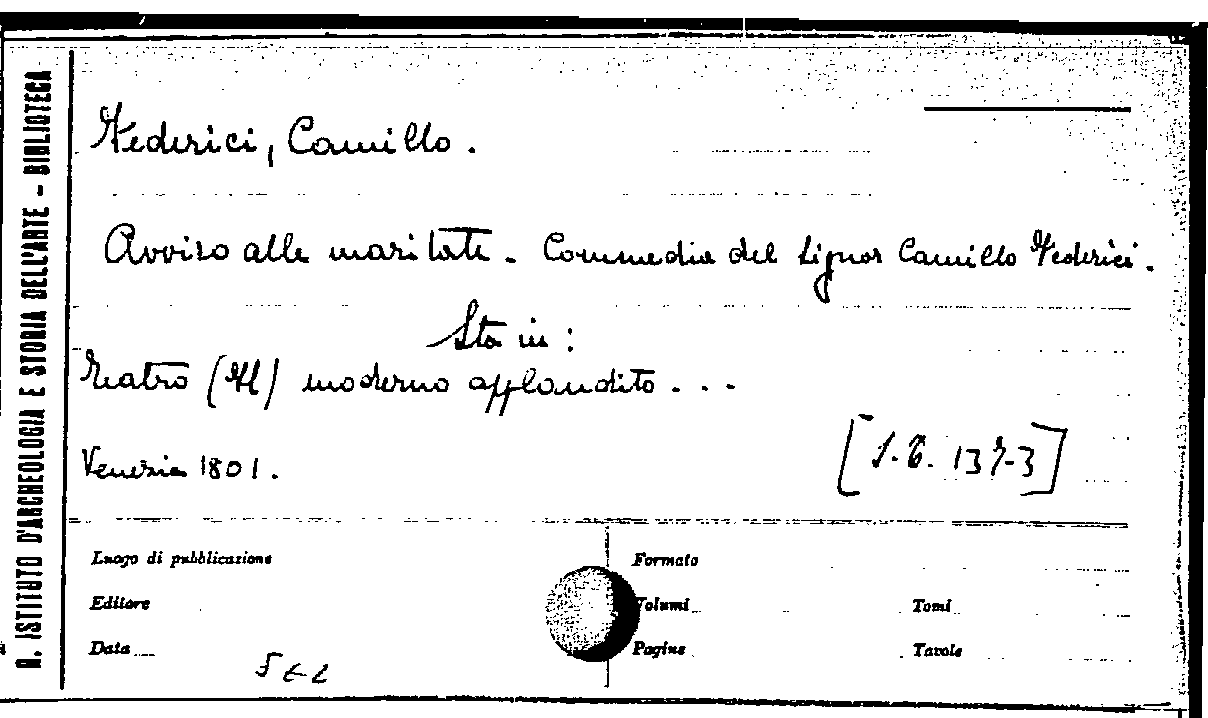 R. ISTITUTO D'ARCHEOLOGIA E STORIA DELL'ARTE - BIBLIOTECA
Federici, Camillo.
Avviso alle maritate. Commedia del Signor Camillo Federici.
Sta in:
Teatro (Il) moderno applaudito...
Venezia 1801.
[S.B. 137-3]
Luogo di pubblicazione
Formato
Editore
Volumi
Tomi
Data
Pagine
Tavole